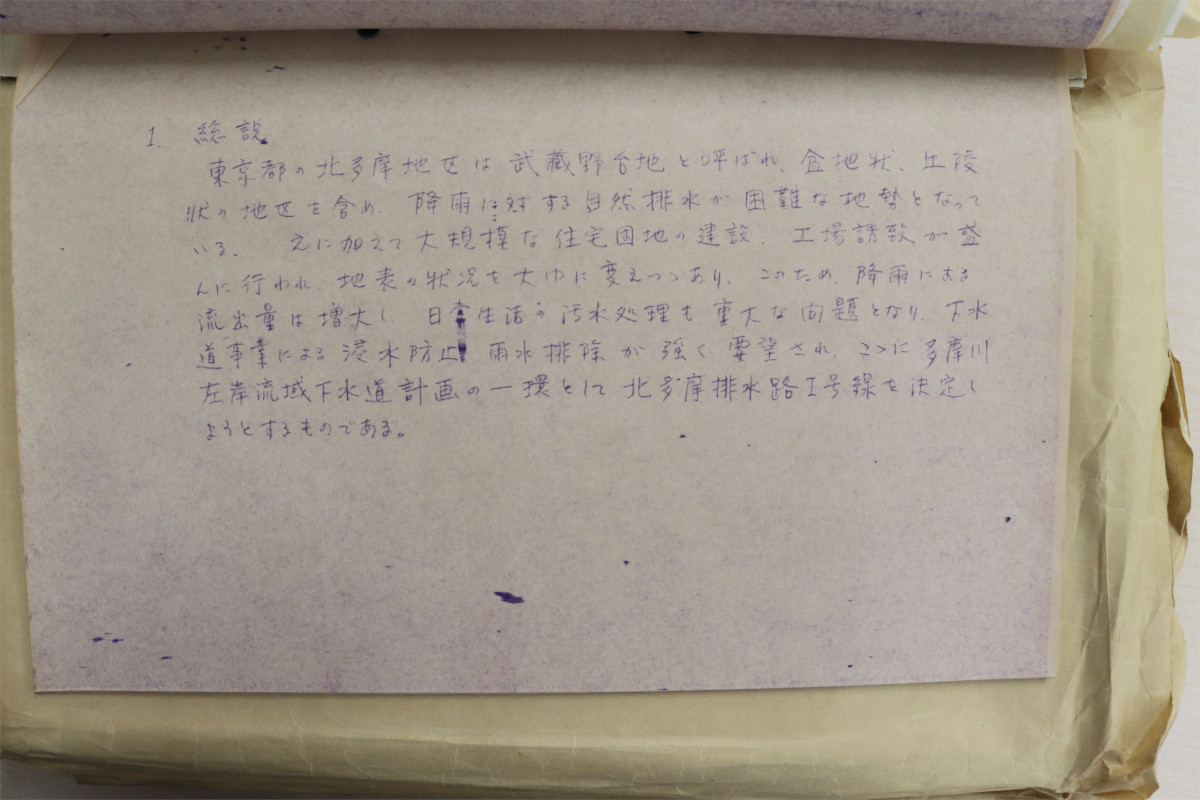 1. 総説
東京都の北多摩地区は武蔵野台地と呼ばれ、盆地状、丘陵
状の地区を含め、降雨に対する自然排水が困難な地勢となって
いる。 之に加えて大規模な住宅団地の建設、工場誘致が盛
んに行われ、地表の状況を大巾に変えつつあり、このため、降雨による
流出量は増大し、日常生活の汚水処理も重大な問題となり、下水
道事業による浸水防止、雨水排除が強く要望され、ここに多摩川
左岸流域下水道計画の一環として北多摩排水路I号線を決定し
ようとするものである。